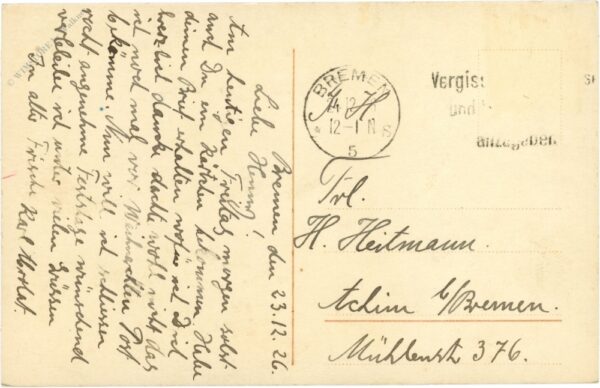 Bremen den 23.12.26.
Liebe Henny!
Am heutigen Freitag morgen sollst
auch Du ein Kärtchen bekommen. Habe
deinen Brief erhalten wofür ich Dir
herzlich danke dachte wohl nicht das
ich noch mal vor Weihnachten Post
bekomme. Nun will ich schliessen
recht angenehme Festtage wünschend
verbleibe ich unter vielen Grüssen
In alter Frische Karl
BREMEN
12-1 N
* 5 S
Vergiss
und
anzugeben
Frl.
H. Heitmann.
Achim b/Bremen.
Mühlenstr 376.